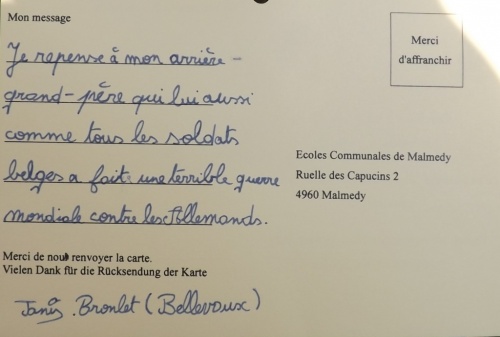 Mon message
Je repense à mon arrière-
grand-père qui lui aussi
comme tous les soldats
belges a fait une terrible guerre
mondiale contre les Allemands.
Merci
d'affranchir
Ecoles Communales de Malmedy
Ruelle des Capucins 2
4960 Malmedy
Merci de nous renvoyer la carte.
Vielen Dank für die Rücksendung der Karte
Bronlet (Bellevaux)